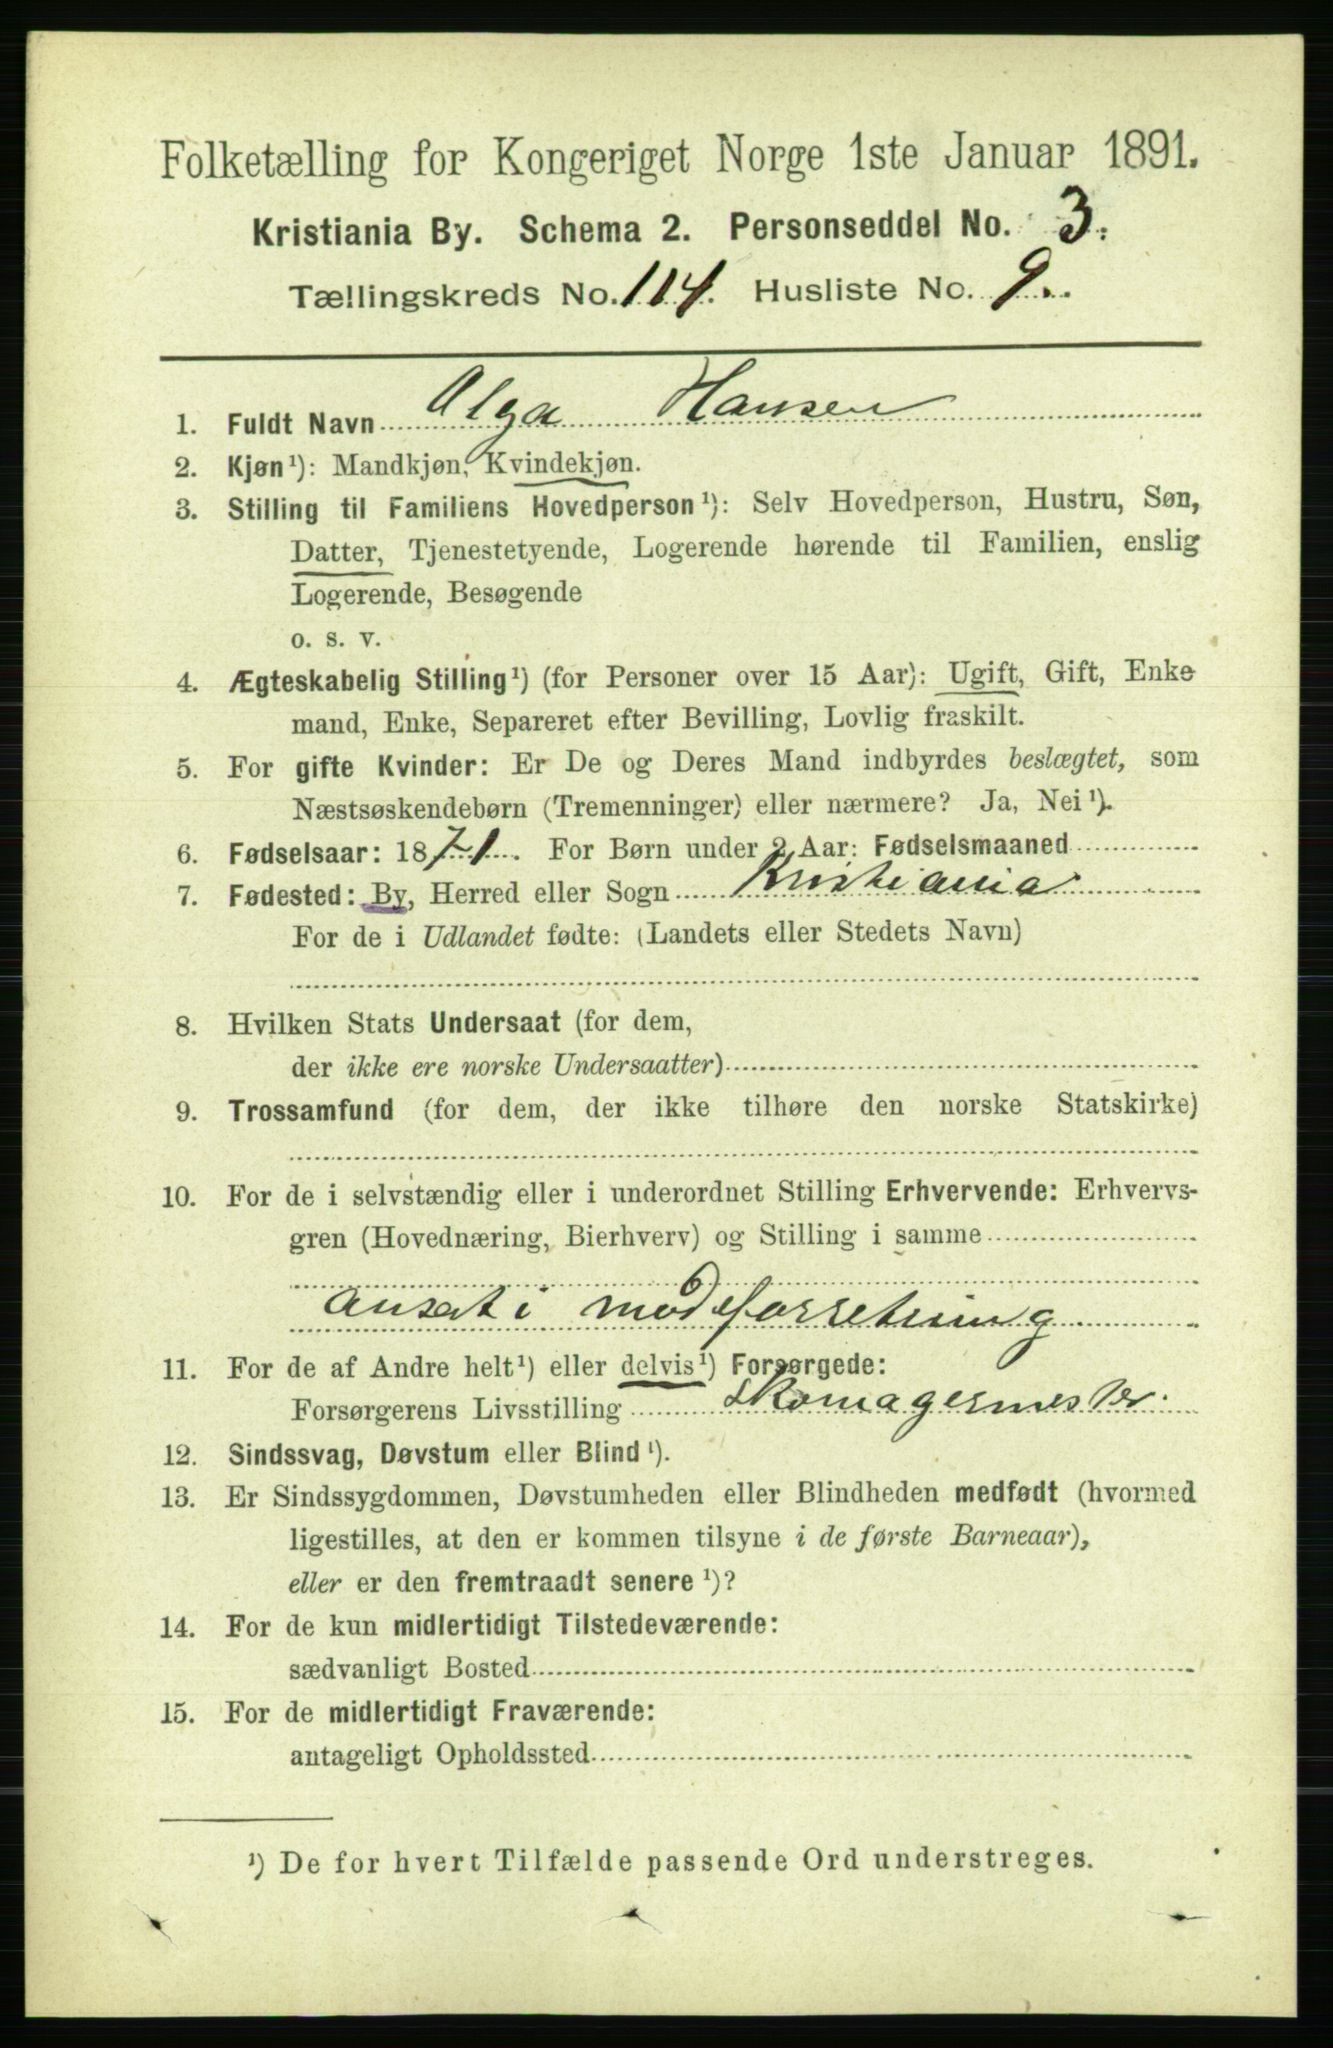 Folketælling for Kongeriget Norge 1ste Januar 1891.
Kristiania By. Schema 2. Personseddel No. 3.
Tællingskreds No. 114. Husliste No. 9.
1. Fuldt Navn Olga Hansen
2. Kjøn¹): Mandkjøn, Kvindekjøn.
3. Stilling til Familiens Hovedperson¹): Selv Hovedperson, Hustru, Søn,
Datter, Tjenestetyende, Logerende hørende til Familien, enslig
Logerende, Besøgende
o. s. v.
4. Ægteskabelig Stilling¹) (for Personer over 15 Aar): Ugift, Gift, Enke
mand, Enke, Separeret efter Bevilling, Lovlig fraskilt.
5. For gifte Kvinder: Er De og Deres Mand indbyrdes beslægtet, som
Næstsøskendebørn (Tremenninger) eller nærmere? Ja, Nei¹).
6. Fødselsaar: 1871. For Børn under 2 Aar: Fødselsmaaned
7. Fødested: By, Herred eller Sogn Kristiania
For de i Udlandet fødte: (Landets eller Stedets Navn)
8. Hvilken Stats Undersaat (for dem,
der ikke ere norske Undersaatter)
9. Trossamfund (for dem, der ikke tilhøre den norske Statskirke)
10. For de i selvstændig eller i underordnet Stilling Erhvervende: Erhvervs-
gren (Hovednæring, Bierhverv) og Stilling i samme
ansat i modeforretning
11. For de af Andre helt¹) eller delvis¹) Forsørgede:
Forsørgerens Livsstilling Skomagermester.
12. Sindssvag, Døvstum eller Blind¹).
13. Er Sindssygdommen, Døvstumheden eller Blindheden medfødt (hvormed
ligestilles, at den er kommen tilsyne i de første Barneaar),
eller er den fremtraadt senere¹)?
14. For de kun midlertidigt Tilstedeværende:
sædvanligt Bosted
15. For de midlertidigt Fraværende:
antageligt Opholdssted
¹) De for hvert Tilfælde passende Ord understreges.